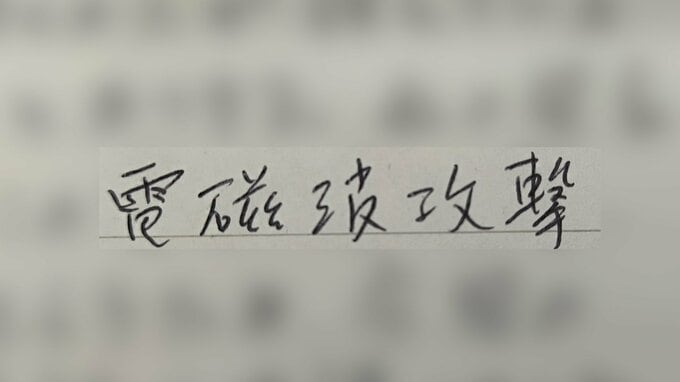 電磁波攻擊